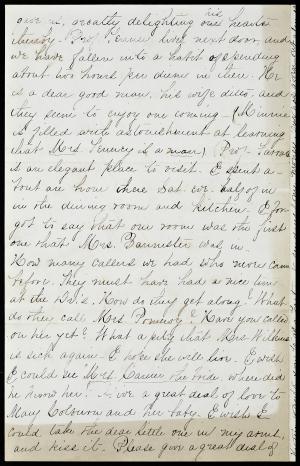 over us, greatly delighting our hearts
thereby. Prof. lives next door and
we have fallen into a habit of spending
about two hours per diem in there. He
is a dear good man, his wife ditto, and
they seem to enjoy our coming. (Minnie
is filled with astonishment at learning
that Mrs. is a man) Prof.
is an elegant place to visit. I spent a-
bout an hour there Sat. eve.
in the dining room and kitchen. I for
got to say that our room was the first
one that Mrs. Bannister was in.
How many callers we had who never came
before. They must have had a nice time
at the Dr's. How do they get along? What
do they call Mrs. Pomeroy? Have you called
on her yet? What a pity that Mrs. Wilkins
is sick again. I hope she will live. I wish
I could see Mrs. the bride. Where did
he know her? Give a great deal of love to
Mary Colburn and her baby. I wish I
could take the dear little one in my arms,
and kiss it. Please give a great deal of